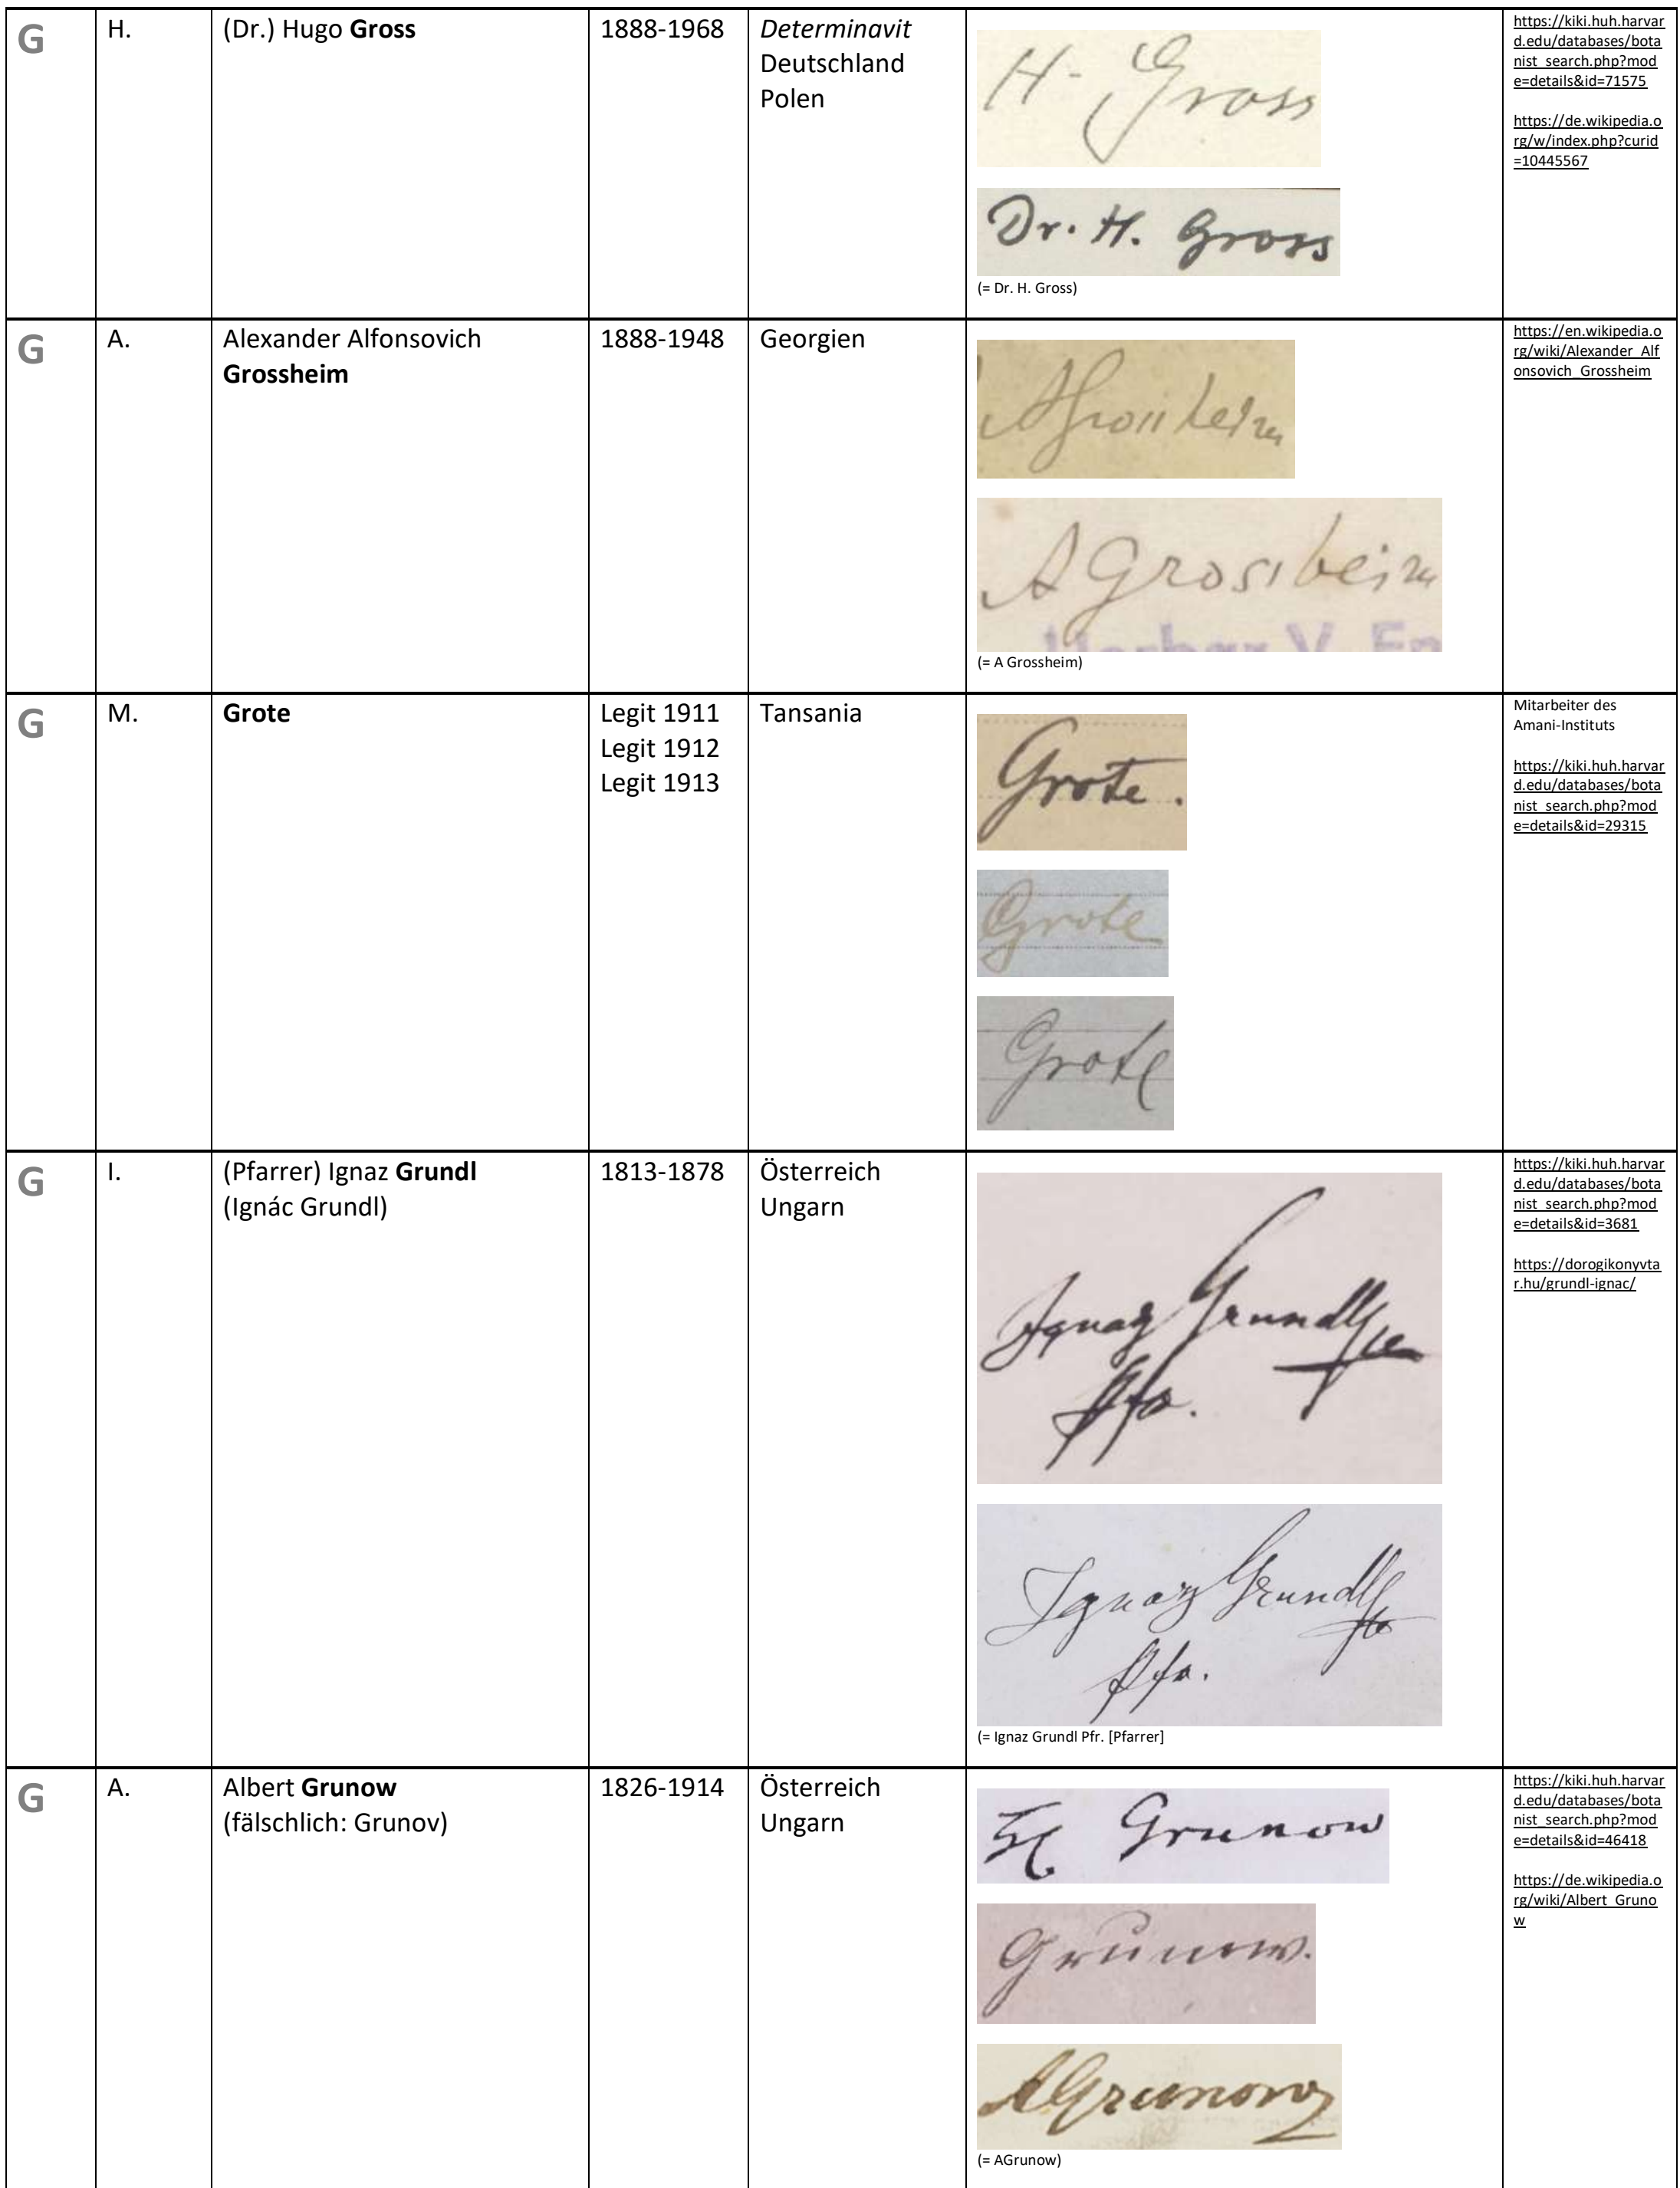 G
H.
(Dr.) Hugo Gross
1888-1968
Determinavit
Deutschland
Polen
H. Gross
Dr. H. Gross
(= Dr. H. Gross)
https://kiki.huh.harvar
d.edu/databases/bota
nist_search.php?mod
e=details&id=71575
https://de.wikipedia.o
rg/w/index.php?curid
=10445567
G
A.
Alexander Alfonsovich
Grossheim
1888-1948
Georgien
AGrossheim
A Grossheim
(= A Grossheim)
https://en.wikipedia.o
rg/wiki/Alexander_Alf
onsovich_Grossheim
G
M.
Grote
Legit 1911
Legit 1912
Legit 1913
Tansania
Grote.
Grote
Grote
Mitarbeiter des
Amani-Instituts
https://kiki.huh.harvar
d.edu/databases/bota
nist_search.php?mod
e=details&id=29315
G
I.
(Pfarrer) Ignaz Grundl
(Ignác Grundl)
1813-1878
Österreich
Ungarn
Ignaz Grundl
Pfr.
Ignaz Grundl
Pfr.
(= Ignaz Grundl Pfr. [Pfarrer]
https://kiki.huh.harvar
d.edu/databases/bota
nist_search.php?mod
e=details&id=3681
https://dorogikonyvta
r.hu/grundl-ignac/
G
A.
Albert Grunow
(fälschlich: Grunov)
1826-1914
Österreich
Ungarn
Grunow
Grunow.
AGrunow
(= AGrunow)
https://kiki.huh.harvar
d.edu/databases/bota
nist_search.php?mod
e=details&id=46418
https://de.wikipedia.o
rg/wiki/Albert_Gruno
w